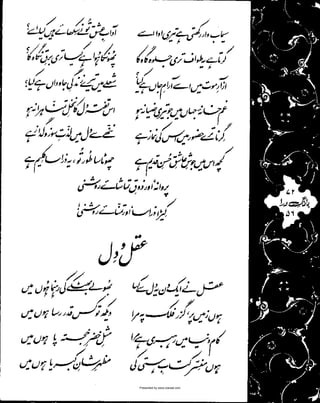 سیماب وار رکھتی ہے تیری ادا اسے آدابِ عشق تو نے سکھائے ہیں کیا اسے؟
کرتا ہے یہ طواف تری جلوہ گاہ کا پھونکا ہوا ہے کیا تری برقِ نگاہ کا؟
آزارِ موت میں اسے آرامِ جاں ہے کیا؟ شعلے میں تیرے زندگیِ جاوداں ہے کیا؟
غم خانۂ جہاں میں جو تیری ضیا نہ ہو اس تفتہ دل کا نخلِ تمنا ہرا نہ ہو
گرنا ترے حضور میں اس کی نماز ہے ننھے سے دل میں لذتِ سوز و گداز ہے
کچھ اس میں جوشِ عاشقِ حسنِ قدیم ہے چھوٹا سا طور تو، یہ ذرا سا کلیم ہے
پروانہ، اور ذوقِ تماشائے روشنی
کیڑا ذرا سا، اور تمنائے روشنی!
عقل و دل
عقل نے ایک دن یہ دل سے کہا بھولے بھٹکے کی رہنما ہوں میں
ہوں زمیں پر، گزر فلک پہ مرا دیکھ تو کس قدر رسا ہوں میں
کام دنیا میں رہبری ہے مرا مثلِ خضرِ خجستہ پا ہوں میں
ہوں مفسرِ کتابِ ہستی کی مظہرِ شانِ کبریا ہوں میں
۷۲
بانگِ درا
۵۶